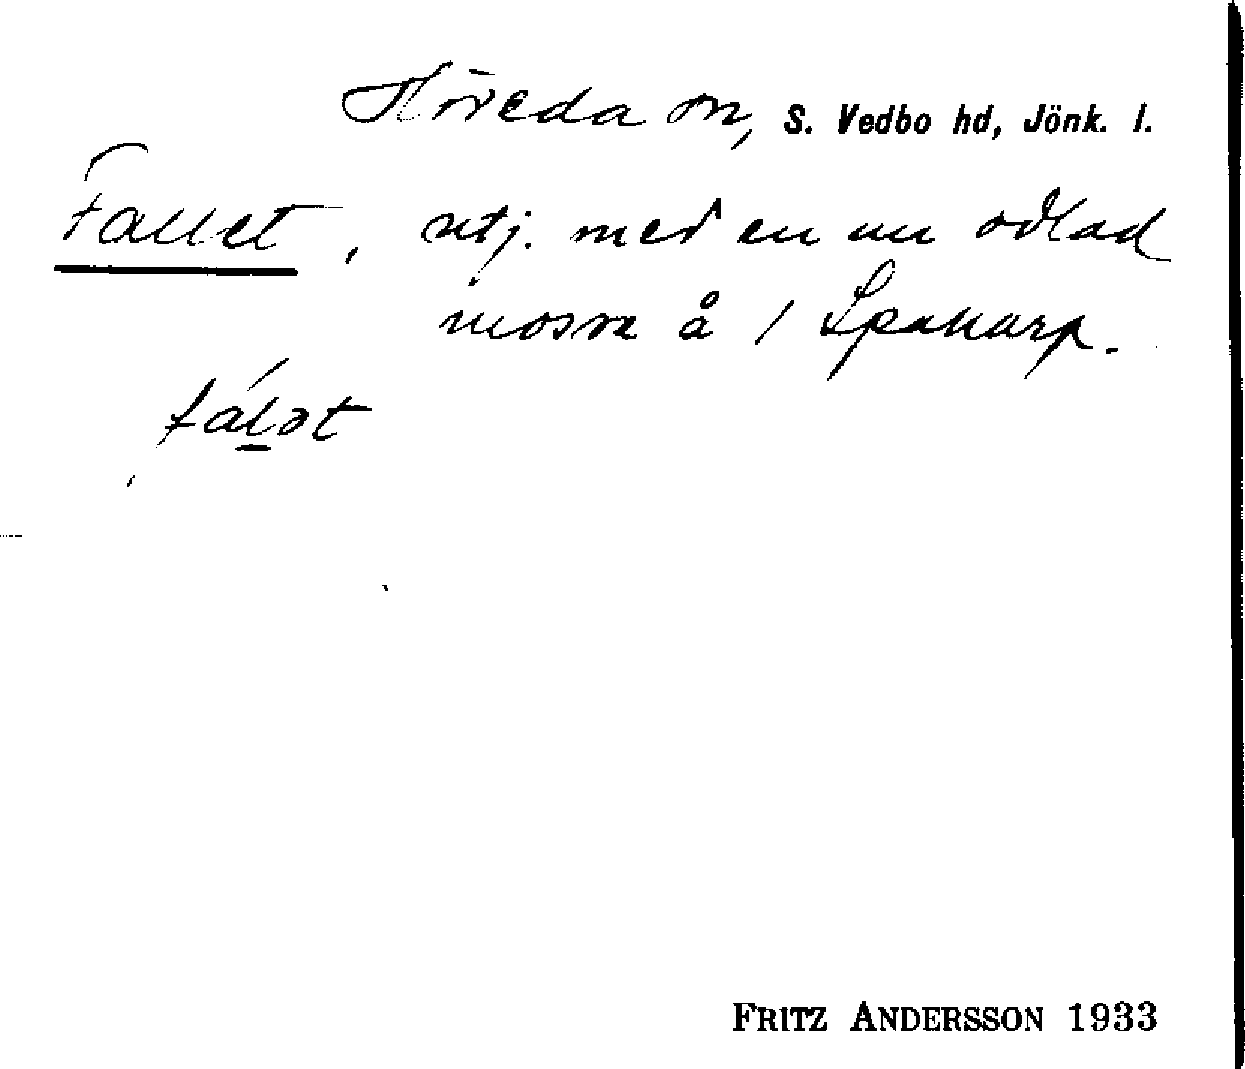 Höreda sn, S. Vedbo hd, Jönk. l.
Fallet, utj. med en nu odlad
mosse å 1 Spakarp.
fáḻət
FRITZ ANDERSSON 1933